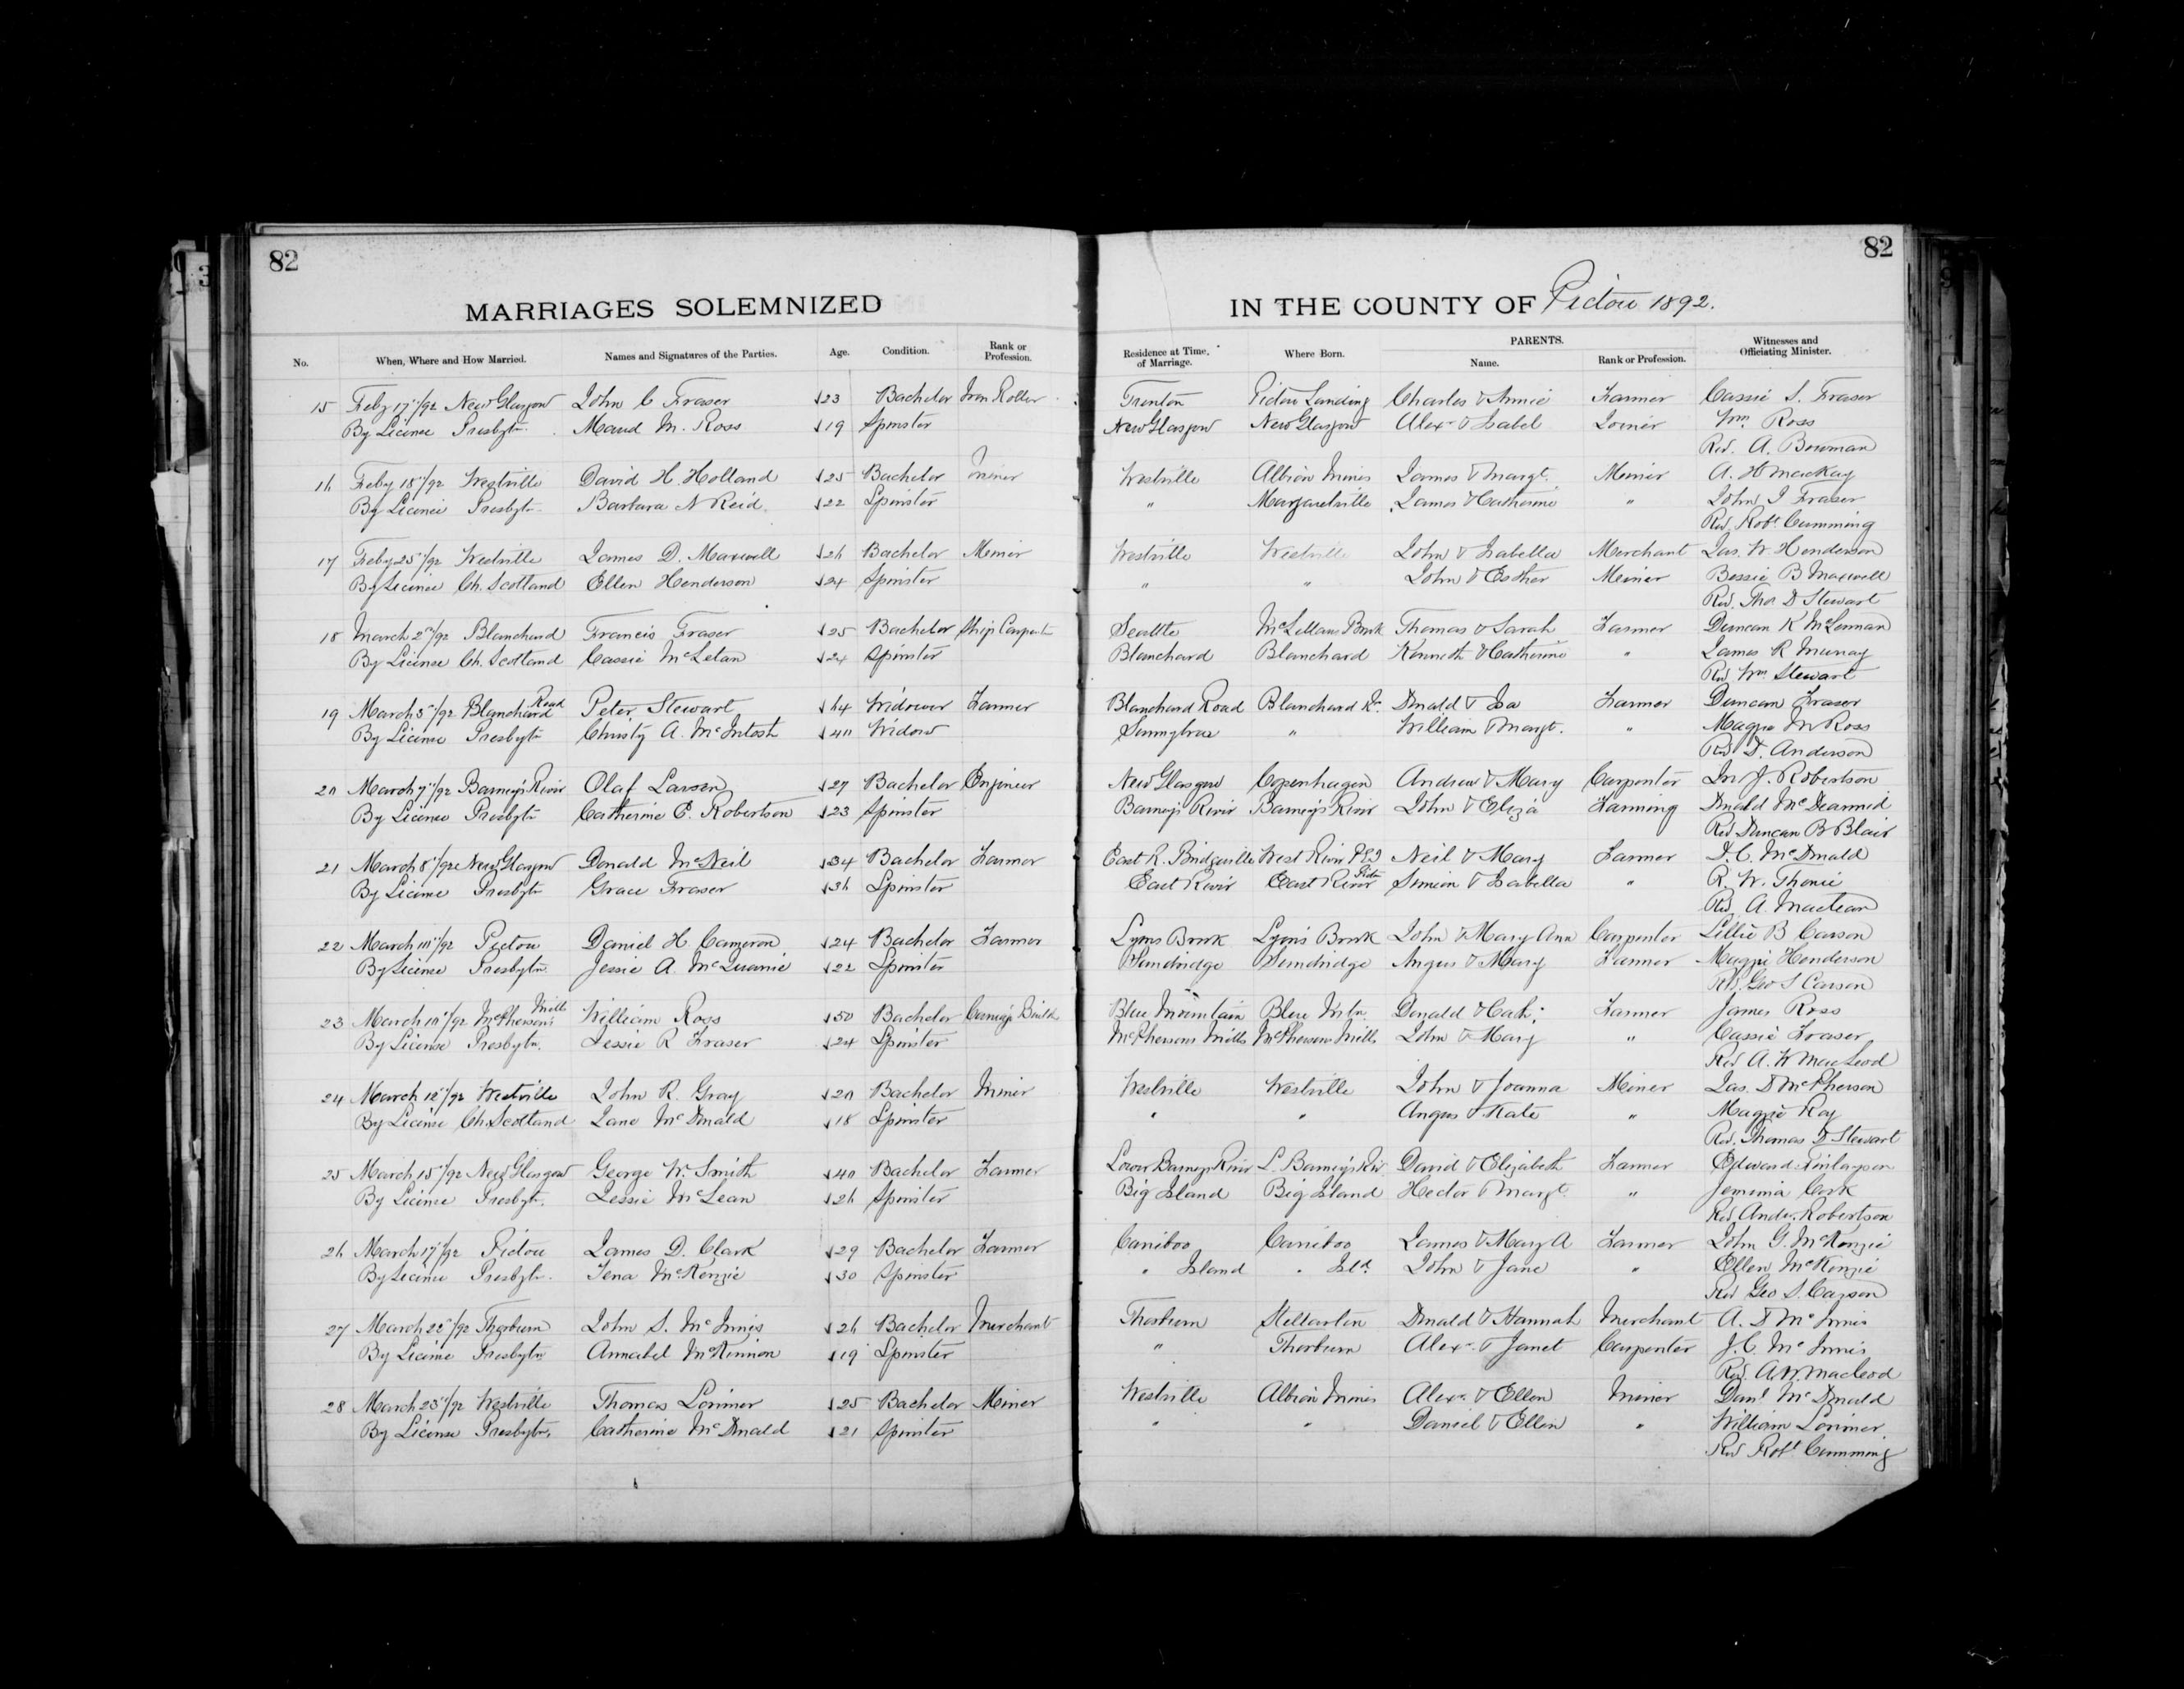 82
82
MARRIAGES SOLEMNIZED IN THE COUNTY OF Pictou 1892.
No. When, Where and How Married. Names and Signatures of the Parties. Age. Condition. Rank or Profession. Residence at Time of Marriage. Where Born. PARENTS. Name. Rank or Profession. Witnesses and Officiating Minister.
15 Feby 17/92 New Glasgow John C Fraser 23 Bachelor Iron Roller Trenton Pictou Landing Charles & Annie Farmer Cassie S. Fraser
By License Presbytn. Maud M. Ross 19 Spinster New Glasgow New Glasgow Alexr & Isabel Joiner Wm. Ross
Rev. A. Bowman
16 Feby 18/92 Westville David H. Holland 25 Bachelor Miner Westville Albion Mines James & Margt. Miner A. H MacKay
By License Presbytn. Barbara N Reid 22 Spinster " Margaretville James & Catherine " John J Fraser
Rev. Robt Cumming
17 Feby 25/92 Westville James D. Maxwell 26 Bachelor Miner Westville Westville John & Isabella Merchant Jas. W. Henderson
By License Ch. Scotland Ellen Henderson 24 Spinster " " John & Esther Miner Bessie B Maxwell
Rev. Thos D Stewart
18 March 2/92 Blanchard Francis Fraser 25 Bachelor Ship Carpentr Seattle McLellans Brook Thomas & Sarah Farmer Duncan K McLennan
By License Ch. Scotland Cassie McLean 24 Spinster Blanchard Blanchard Kenneth & Catherine " James R Murray
Rev Wm. Stewart
19 March 3/92 Blanchard Road Peter Stewart 64 Widower Farmer Blanchard Road Blanchard Rd. Donald & Isa Farmer Duncan Fraser
By License Presbytn Christy A. McIntosh 40 Widow Sunnybrae " William & Margt. " Maggie M Ross
Rev D. Anderson
20 March 7/92 Barney's River Olaf Larsen 27 Bachelor Engineer New Glasgow Copenhagen Andrew & Mary Carpenter Jn J. Robertson
By License Presbytn Catherine E. Robertson 23 Spinster Barneys River Barney's River John & Eliza Farming Donald McDearmid
Rev Duncan B Blair
21 March 8/92 New Glasgow Donald McNeil 34 Bachelor Farmer East R. Bridgeville West River PEI Neil & Mary Farmer D. C. McDonald
By License Presbytn Grace Fraser 36 Spinster East River East River Pictou Simeon & Isabella " R. W.
Rev A. Maclean
22 March 10/92 Pictou Daniel H. Cameron 24 Bachelor Farmer Lyons Brook Lyon's Brook John & Mary Ann Carpenter Lillie B Carson
By License Presbytn. Jessie A. McQuarrie 22 Spinster Sundridge Sundridge Angus & Mary Farmer Maggie Henderson
Rev. Geo S Carson
23 March 10/92 McPherson's Mills William Ross 50 Bachelor Carriage Build. Blue Mountain Blue Mtn. Donald & Cath: Farmer James Ross
By License Presbytn. Jessie R Fraser 24 Spinster McPhersons Mills McPhersons Mills John & Mary " Cassie Fraser
Rev A. W MacLeod
24 March 12/92 Westville John R. Gray 20 Bachelor Miner Westville Westville John & Joanna Miner Jas. D McPherson
By License Ch. Scotland Jane McDonald 18 Spinster " " Angus & Kate " Maggie Ray
Rev. Thomas D Stewart
25 March 15/92 New Glasgow George W. Smith 40 Bachelor Farmer Lower Barneys River L. Barney's Riv David & Elizabeth Farmer Edward Finlayson
By License Presbytn. Jessie McLean 26 Spinster Big Island Big Island Hector & Margt. " Jemima Cook
Rev. Andw. Robertson
26 March 17/92 Pictou James D. Clark 29 Bachelor Farmer Cariboo Cariboo James & Mary A Farmer John G. McKenzie
By License Presbytn. Tena McKenzie 30 Spinster " Island " Isld. John & Jane " Ellen McKenzie
Rev Geo S. Carson
27 March 22/92 Thorburn John S. McInnis 26 Bachelor Merchant Thorburn Stellarton Donald & Hannah Merchant A. D McInnis
By License Presbytn Annabel McKinnon 19 Spinster " Thorburn Alexr. & Janet Carpenter J. C. McInnis
Rev. A W Macleod
28 March 23/92 Westville Thomas Lorimer 25 Bachelor Miner Westville Albion Mines Alexr. & Ellen Miner Danl McDonald
By License Presbytn. Catherine McDonald 21 Spinster " " Daniel & Ellen " William Lorimer
Rev Robt Cumming